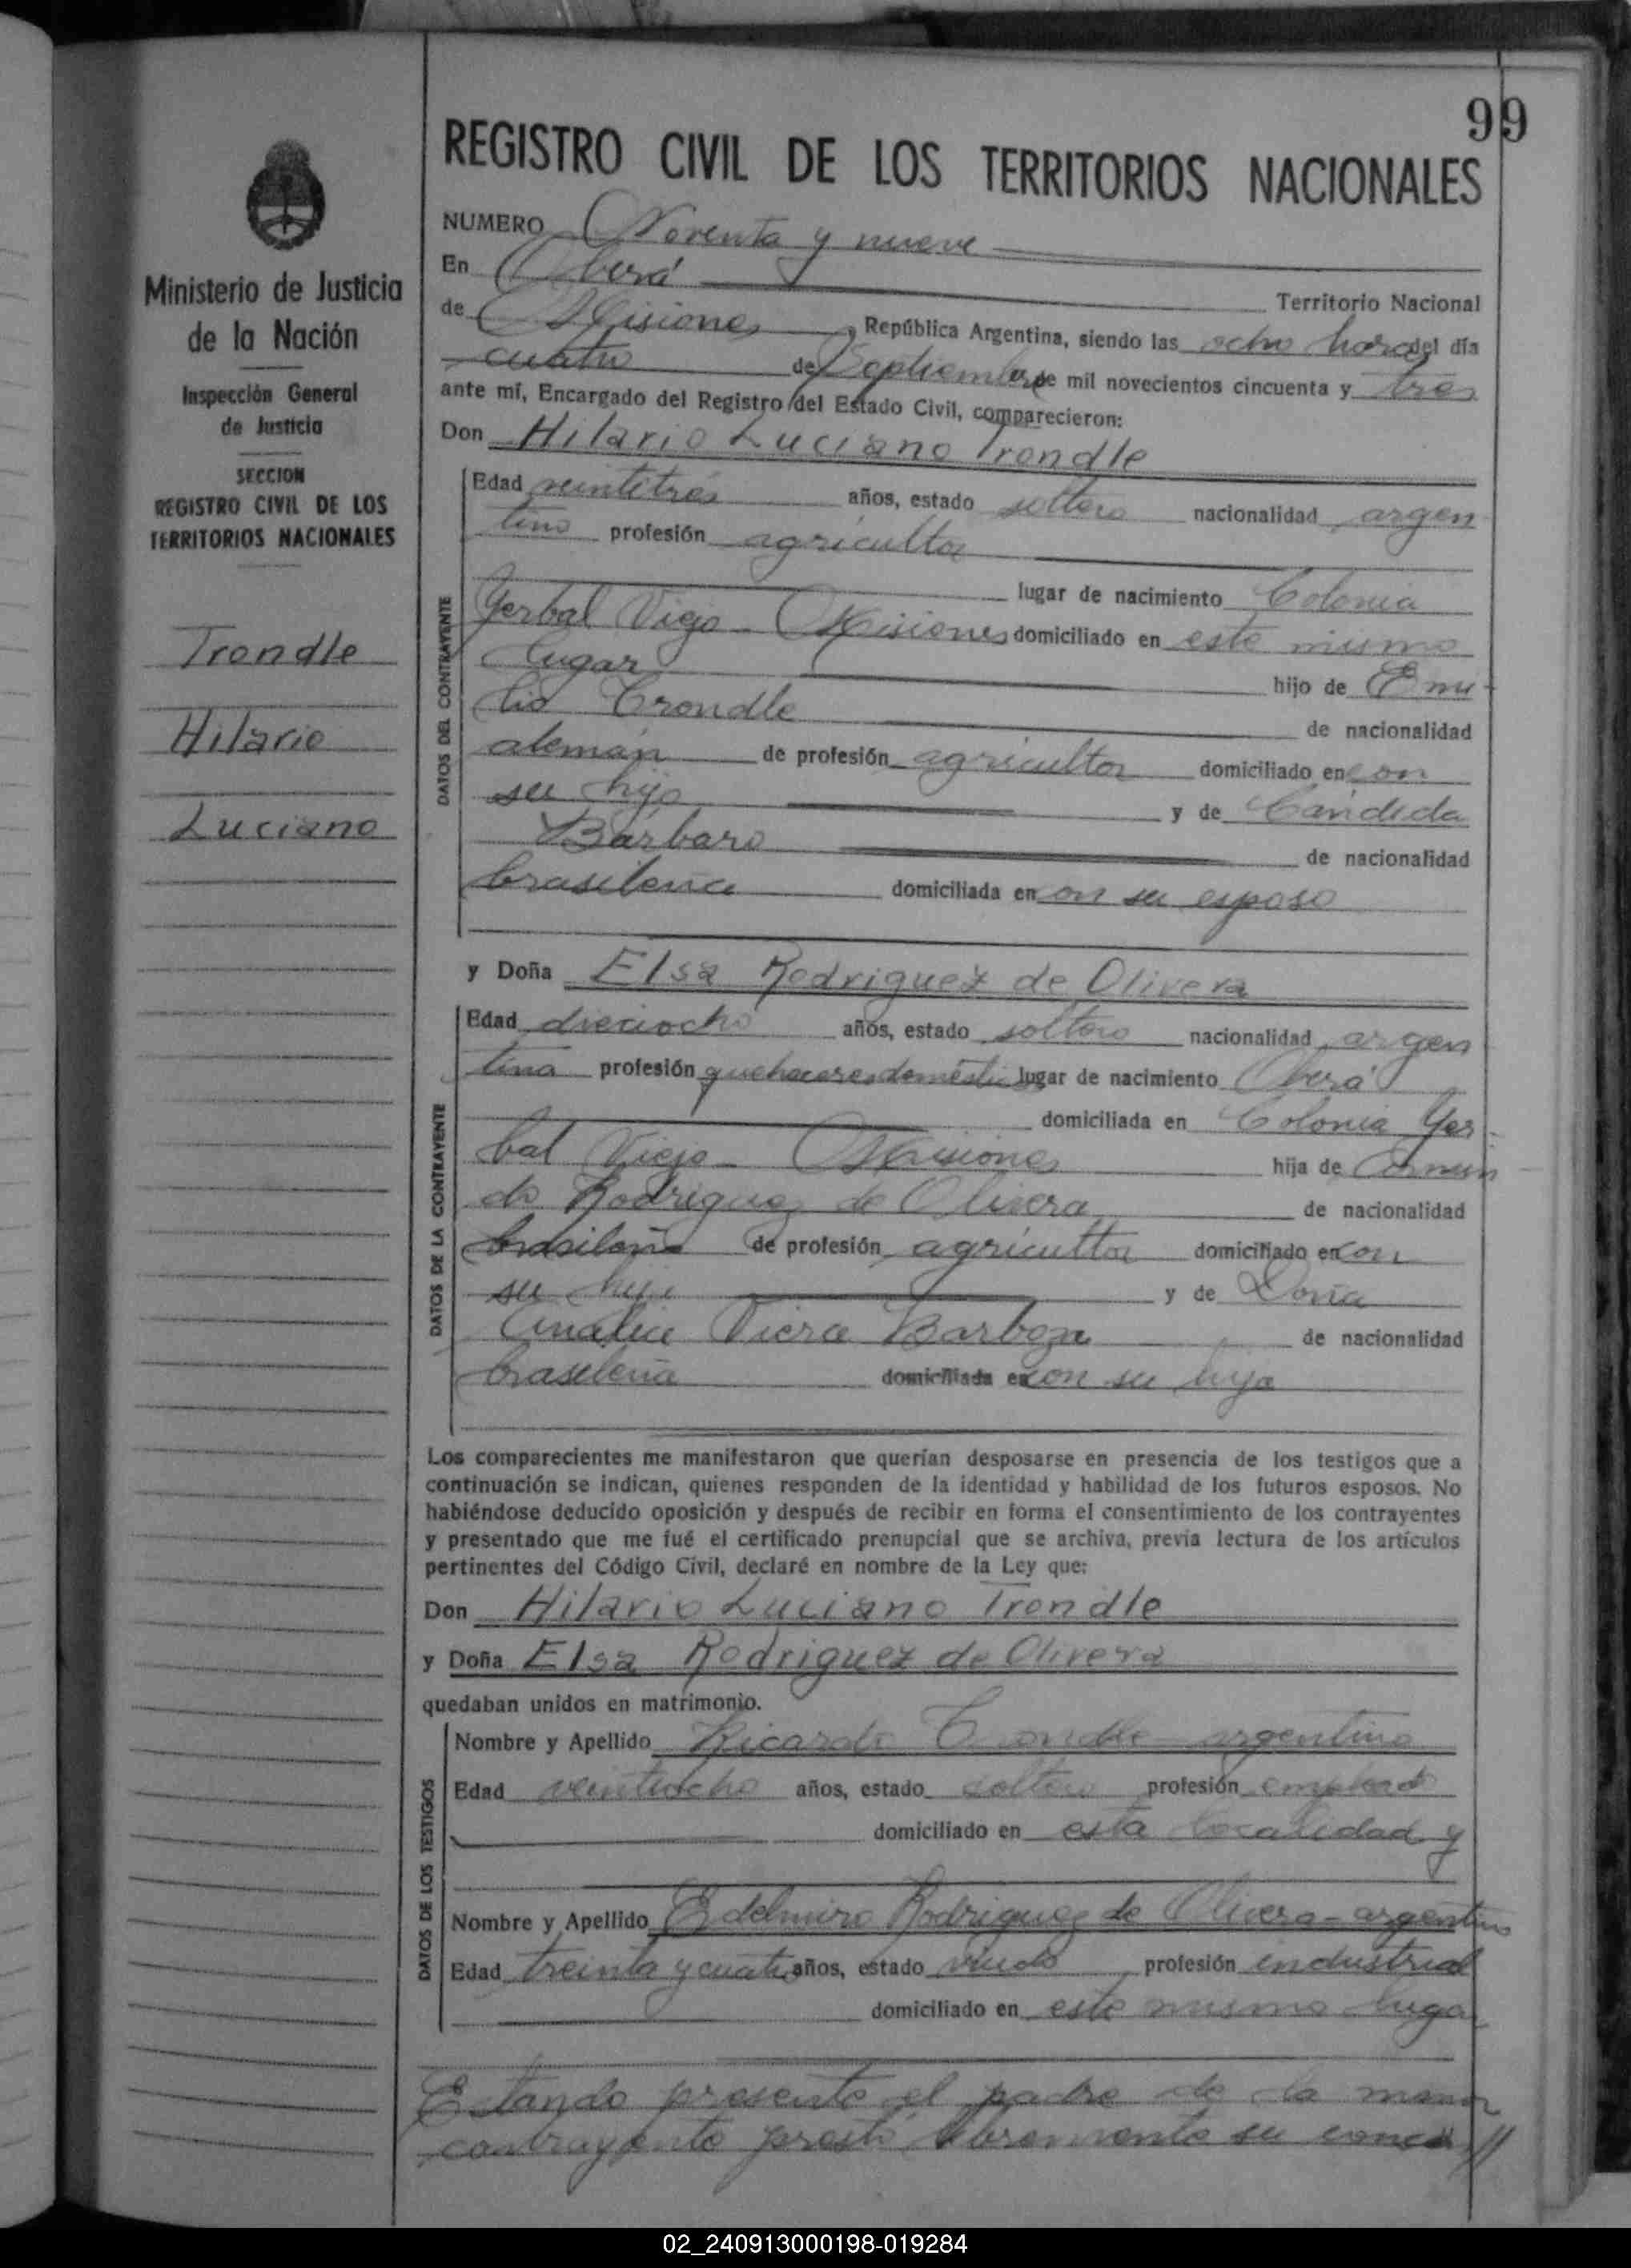 99
REGISTRO CIVIL DE LOS TERRITORIOS NACIONALES
Ministerio de Justicia
de la Nación
Inspección General
de Justicia
SECCION
REGISTRO CIVIL DE LOS
TERRITORIOS NACIONALES
Trondle
Hilario
Luciano
NUMERO Noventa y nueve
En Oberá Territorio Nacional
de Misiones, República Argentina, siendo las ocho horas del día
cuatro de Septiembre de mil novecientos cincuenta y tres
ante mí, Encargado del Registro del Estado Civil, comparecieron:
Don Hilario Luciano Trondle
DATOS DEL CONTRAYENTE
Edad veintitrés años, estado soltero nacionalidad argen
tino profesión agricultor
lugar de nacimiento Colonia
Yerbal Viejo - Misiones domiciliado en este mismo
lugar hijo de Emi-
lio Trondle de nacionalidad
alemán de profesión agricultor domiciliado en con
su hijo y de Cándida
Bárbaro de nacionalidad
brasileña domiciliada en con su esposo
y Doña Elsa Rodriguez de Olivera
DATOS DE LA CONTRAYENTE
Edad dieciocho años, estado soltero nacionalidad argen
tina profesión quehaceres domésticos lugar de nacimiento Oberá
domiciliada en Colonia Yer-
bal Viejo - Misiones hija de
do Rodriguez de Olivera de nacionalidad
brasileña de profesión agricultor domiciliado en con
su hija y de Doña
Analia Viera Barboza de nacionalidad
brasileña domiciliada en con su hija
Los comparecientes me manifestaron que querían desposarse en presencia de los testigos que a
continuación se indican, quienes responden de la identidad y habilidad de los futuros esposos. No
habiéndose deducido oposición y después de recibir en forma el consentimiento de los contrayentes
y presentado que me fué el certificado prenupcial que se archiva, previa lectura de los artículos
pertinentes del Código Civil, declaré en nombre de la Ley que:
Don Hilario Luciano Trondle
y Doña Elsa Rodriguez de Olivera
quedaban unidos en matrimonio.
DATOS DE LOS TESTIGOS
Nombre y Apellido Ricardo Trondle - argentino
Edad veintiocho años, estado soltero profesión empleado
domiciliado en esta localidad y
Nombre y Apellido Edelmiro Rodriguez de Olivera - argentino
Edad treinta y cuatro años, estado viudo profesión industrial
domiciliado en este mismo lugar
Estando presente el padre de la menor
contrayente prestó libremente su
02_240913000198-019284